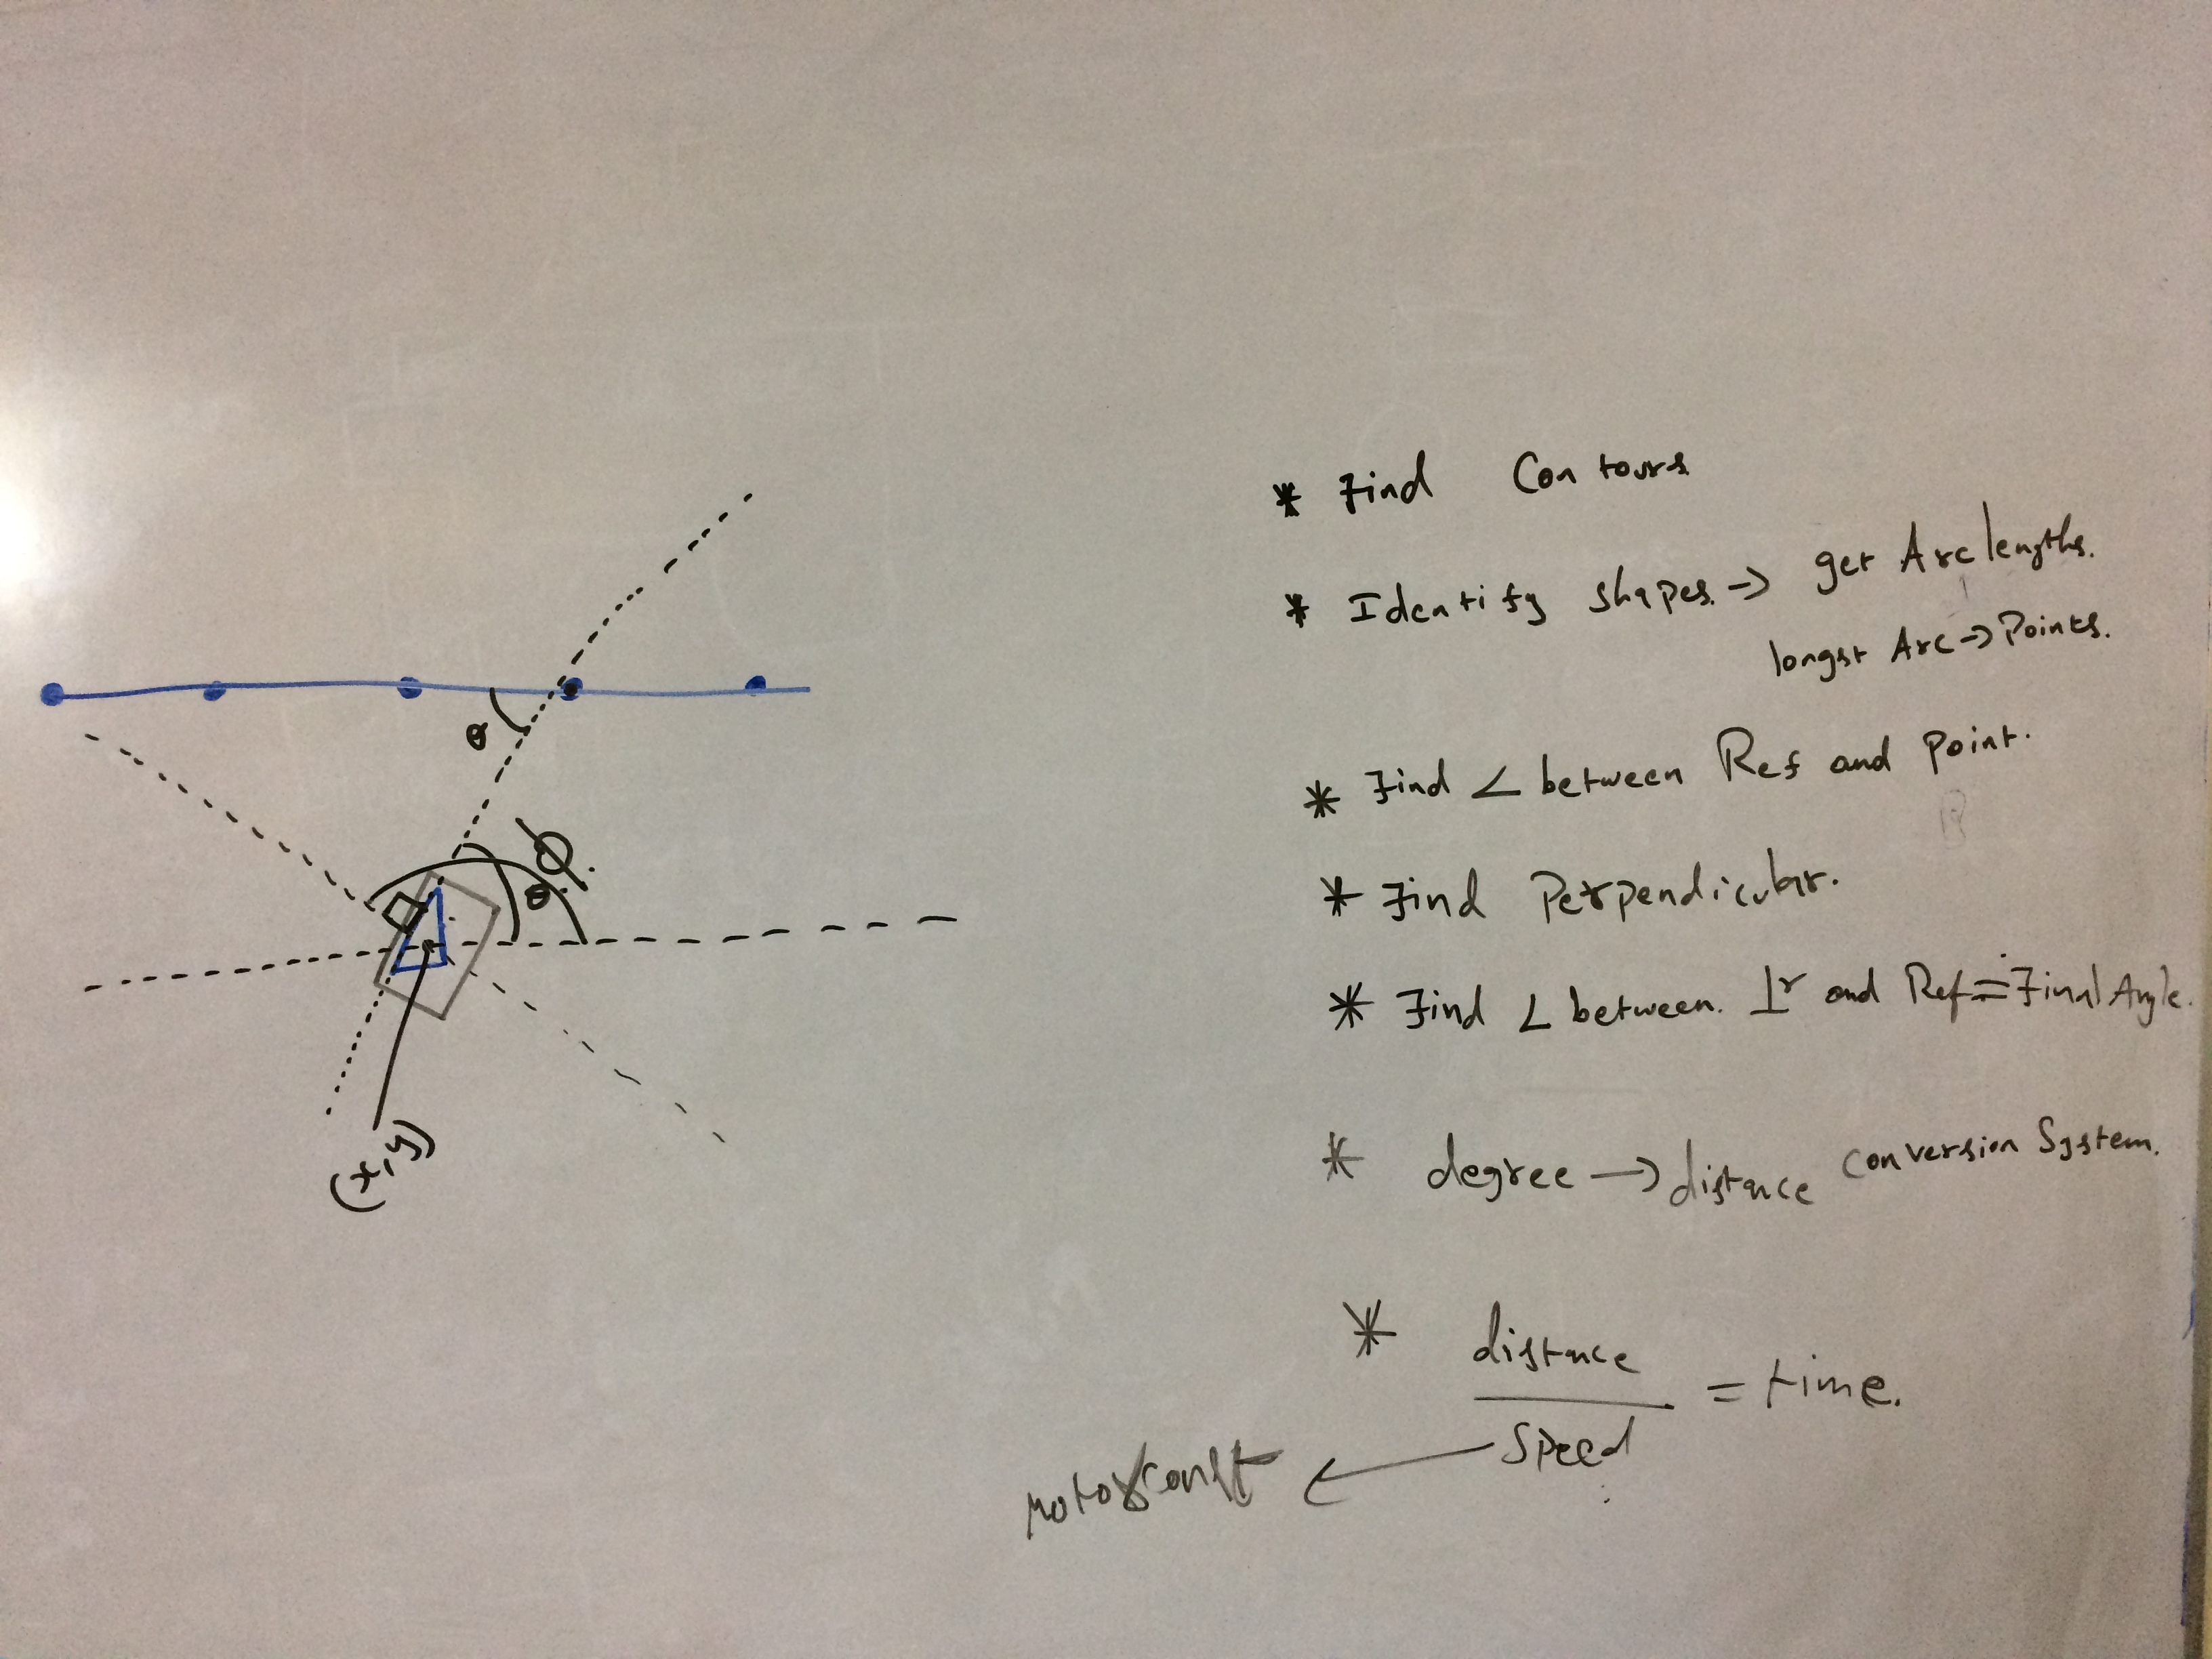 θ
φ.
θ.
(x,y)
* Find Contours
* Identify shapes. → get Arc lengths.
longst Arc → Points.
* Find ∠ between Ref and point.
* Find Perpendicular.
* Find ∠ between. ⊥r and Ref = Final Angle.
* degree → distance conversion System.
* distance
= time.
Speed
motor ←